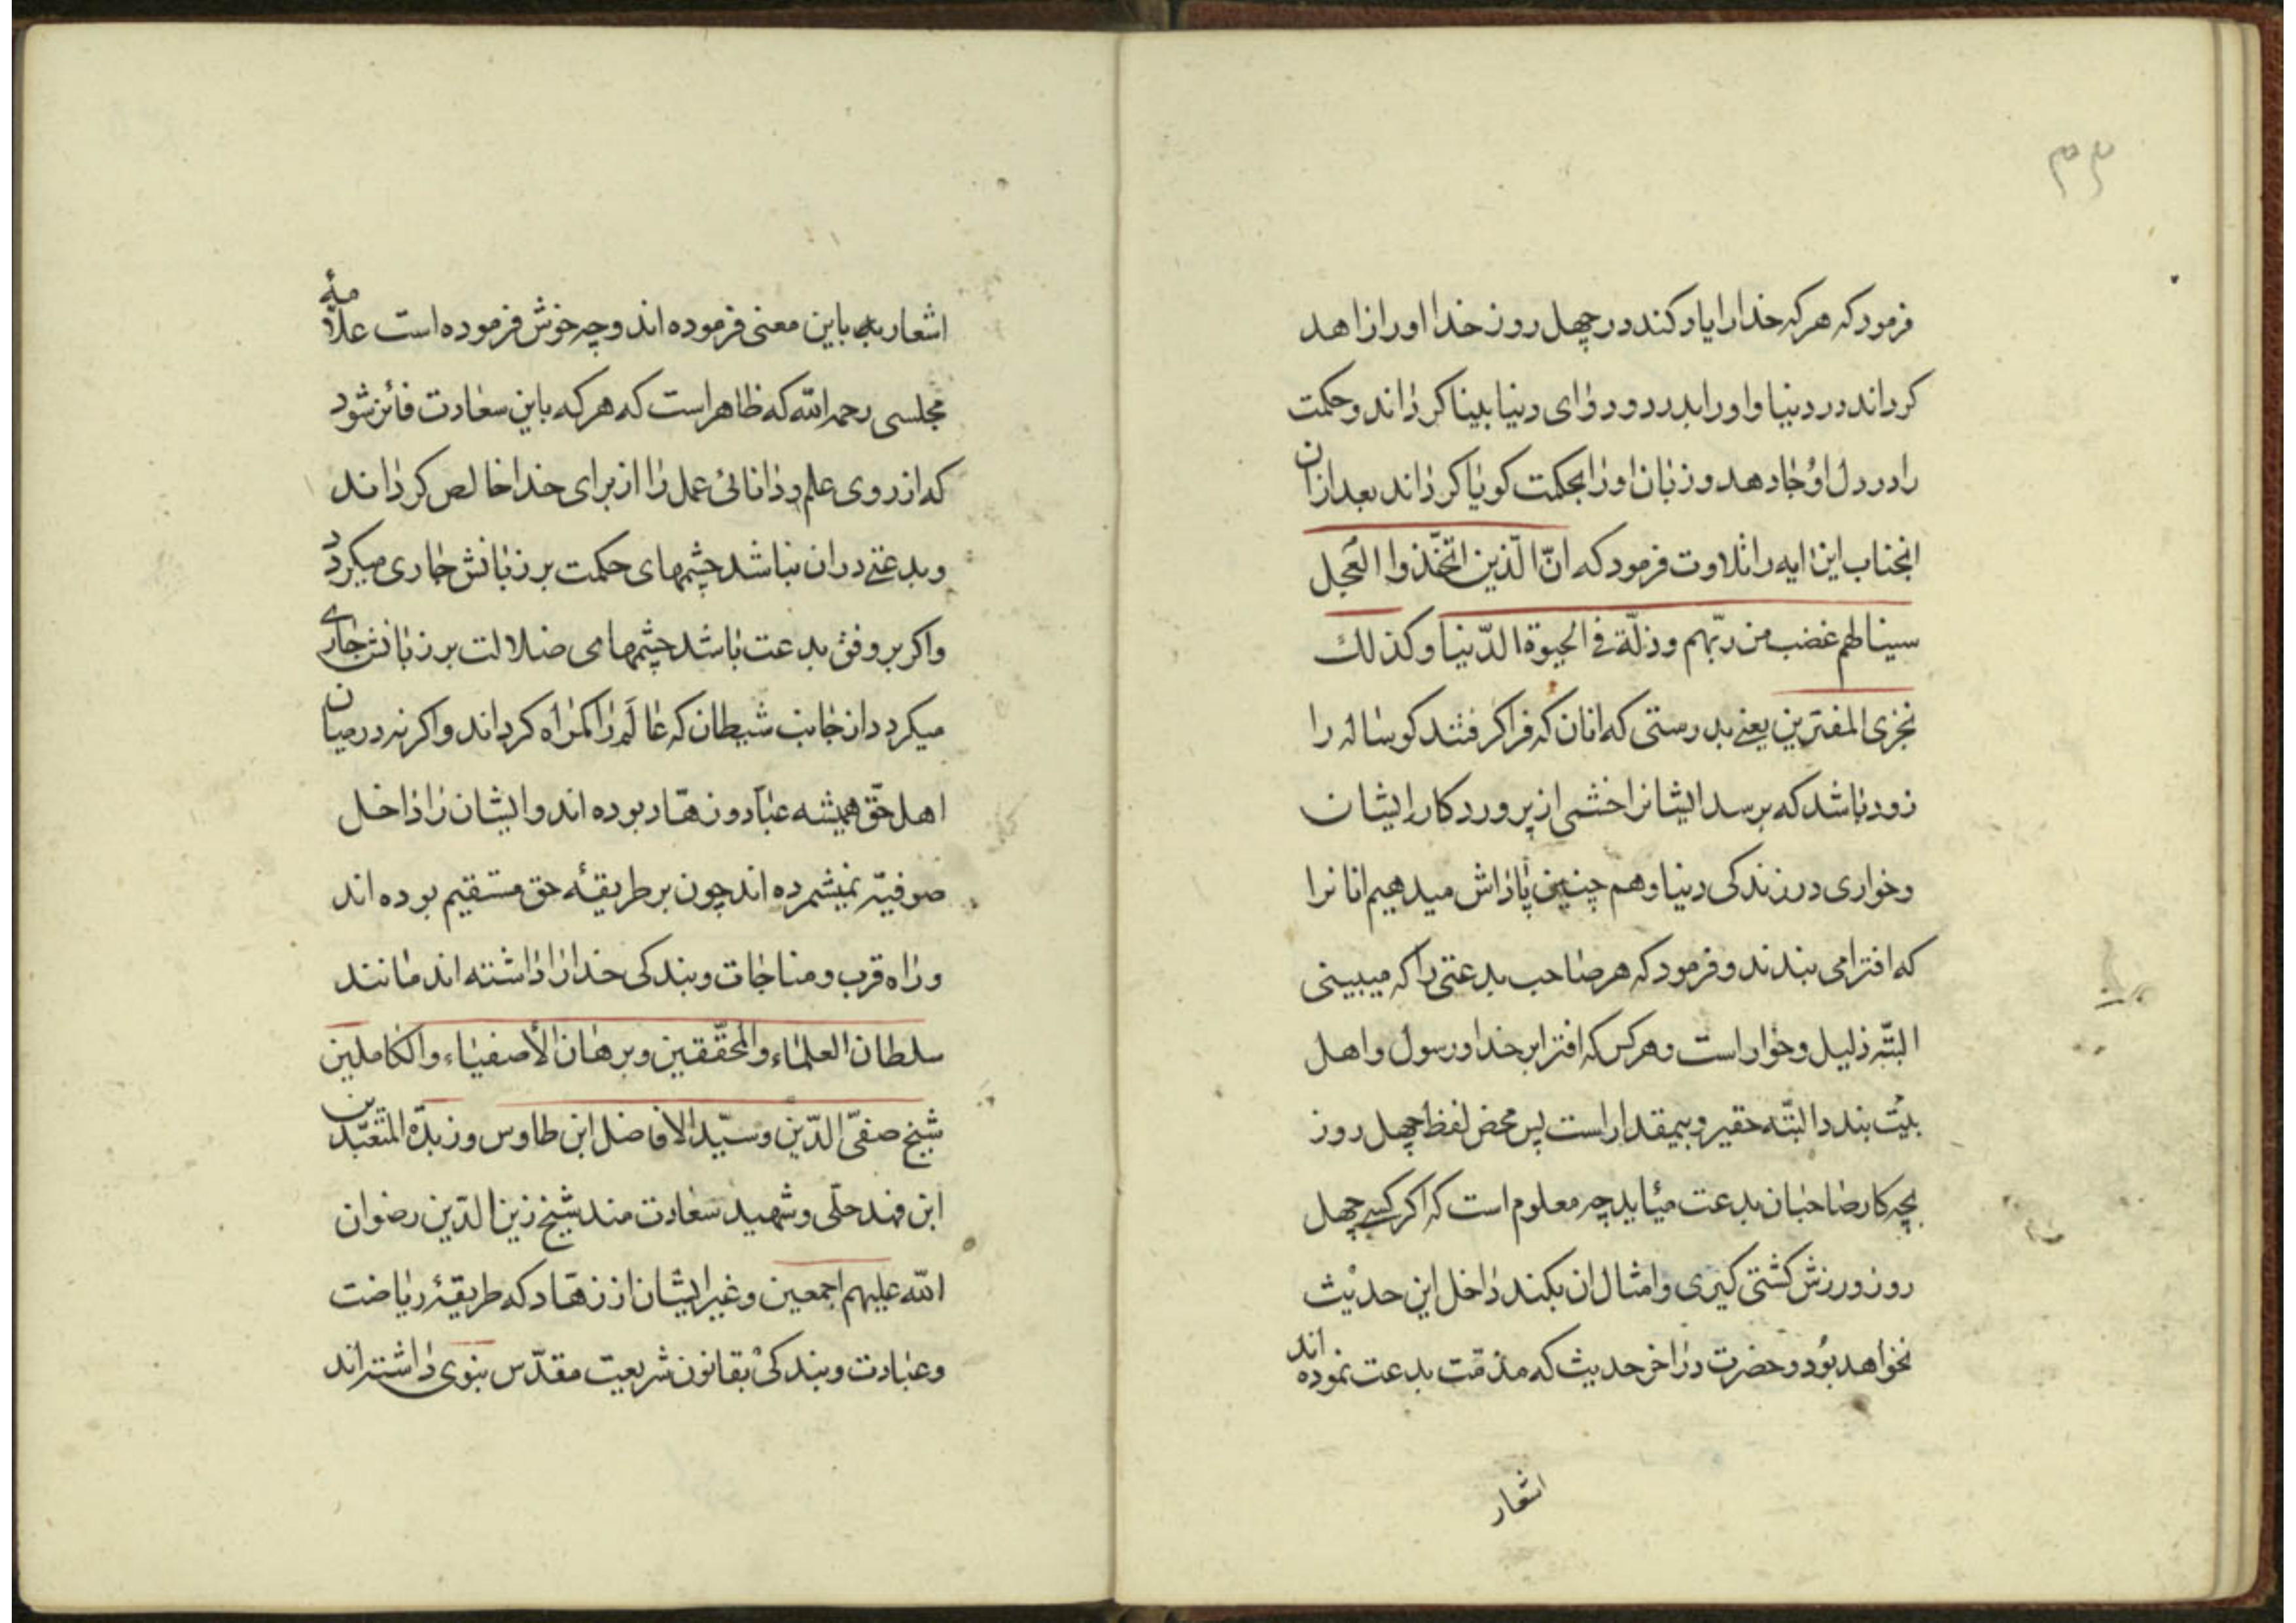 ۳۴
فرمود که هرکه خدا را یاد کند در چهل روز خدا او را زاهد
کرداند در دنیا و او را بدرد و دوای دنیا بینا کرداند و حکمت
را در دل او جا دهد و زبان او را بحکمت کویا کرداند بعد ازان
انجناب این ایه را تلاوت فرمود که انّ الّذین اتّخذوا العجل
سینالهم غضب من ربّهم و ذلّة فی الحیوة الدّنیا و کذلك
نجزی المفترین یعنی بدرستی که انان که فرا کرفتند کوساله را
زود باشد که برسد ایشانرا خشمی از پروردکار ایشان
و خواری در زندکی دنیا و هم چنین پاداش میدهیم انانرا
که افترا می بندند و فرمود که هر صاحب بدعتی را که میبینی
البتّه ذلیل و خوار است و هر کس که افترا بر خدا و رسول و اهل
بیت بندد البتّه حقیر و بیمقدار است پس محض لفظ چهل روز
بچه کار صاحبان بدعت میاید چه معلوم است که اکر کسی چهل
روز ورزش کشتی کیری و امثال ان بکند داخل این حدیث
نخواهد بود و حضرت در اخر حدیث که مذمّت بدعت نموده اند
اشعار
اشعار به باین معنی فرموده اند و چه خوش فرموده است علامهٔ
مجلسی رحمه الله که ظاهر است که هر که باین سعادت فائز شود
که از روی علم و دانائی عمل را از برای خدا خالص کرداند
و بدعتی دران نباشد چشمهای حکمت بر زبانش جاری میکردد
و اکر بر وفق بدعت باشد چشمهای ضلالت بر زبانش جاری
میکردد از جانب شیطان که عالم را کمراه کرداند و اکر نه در میان
اهل حقّ همیشه عبّاد و زهّاد بوده اند و ایشان را داخل
صوفیّه نمیشمرده اند چون بر طریقهٔ حق مستقیم بوده اند
و راه قرب و مناجات و بندکی خدا را داشته اند مانند
سلطان العلماء و المحقّقین و برهان الأصفیاء و الکاملین
شیخ صفیّ الدّین و سیّد الافاضل ابن طاوس و زبدة المتعبّدین
ابن فهد حلّی و شهید سعادت مند شیخ زین الدّین رضوان
الله علیهم اجمعین و غیر ایشان از زهّاد که طریقهٔ ریاضت
و عبادت و بندکی بقانون شریعت مقدّس نبوی داشته اند